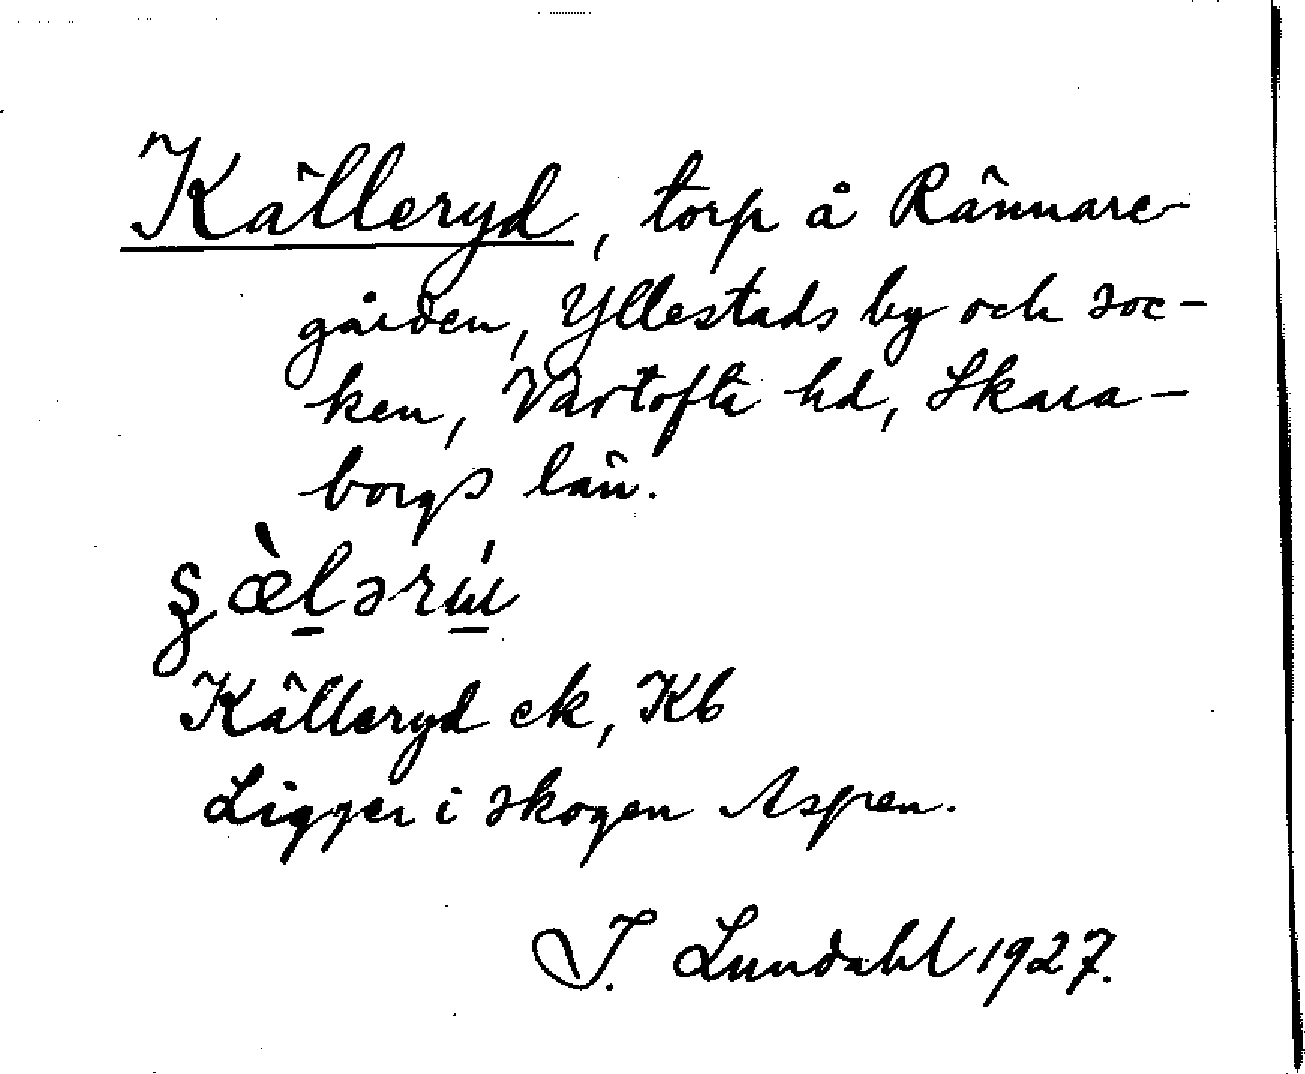 Källeryd, torp å Rännare-
gården, Yllestads by och soc-
ken, Vartofta hd, Skara-
borgs län.
Källeryd ek, Kb
Ligger i skogen Aspen.
I. Lundahl 1927.